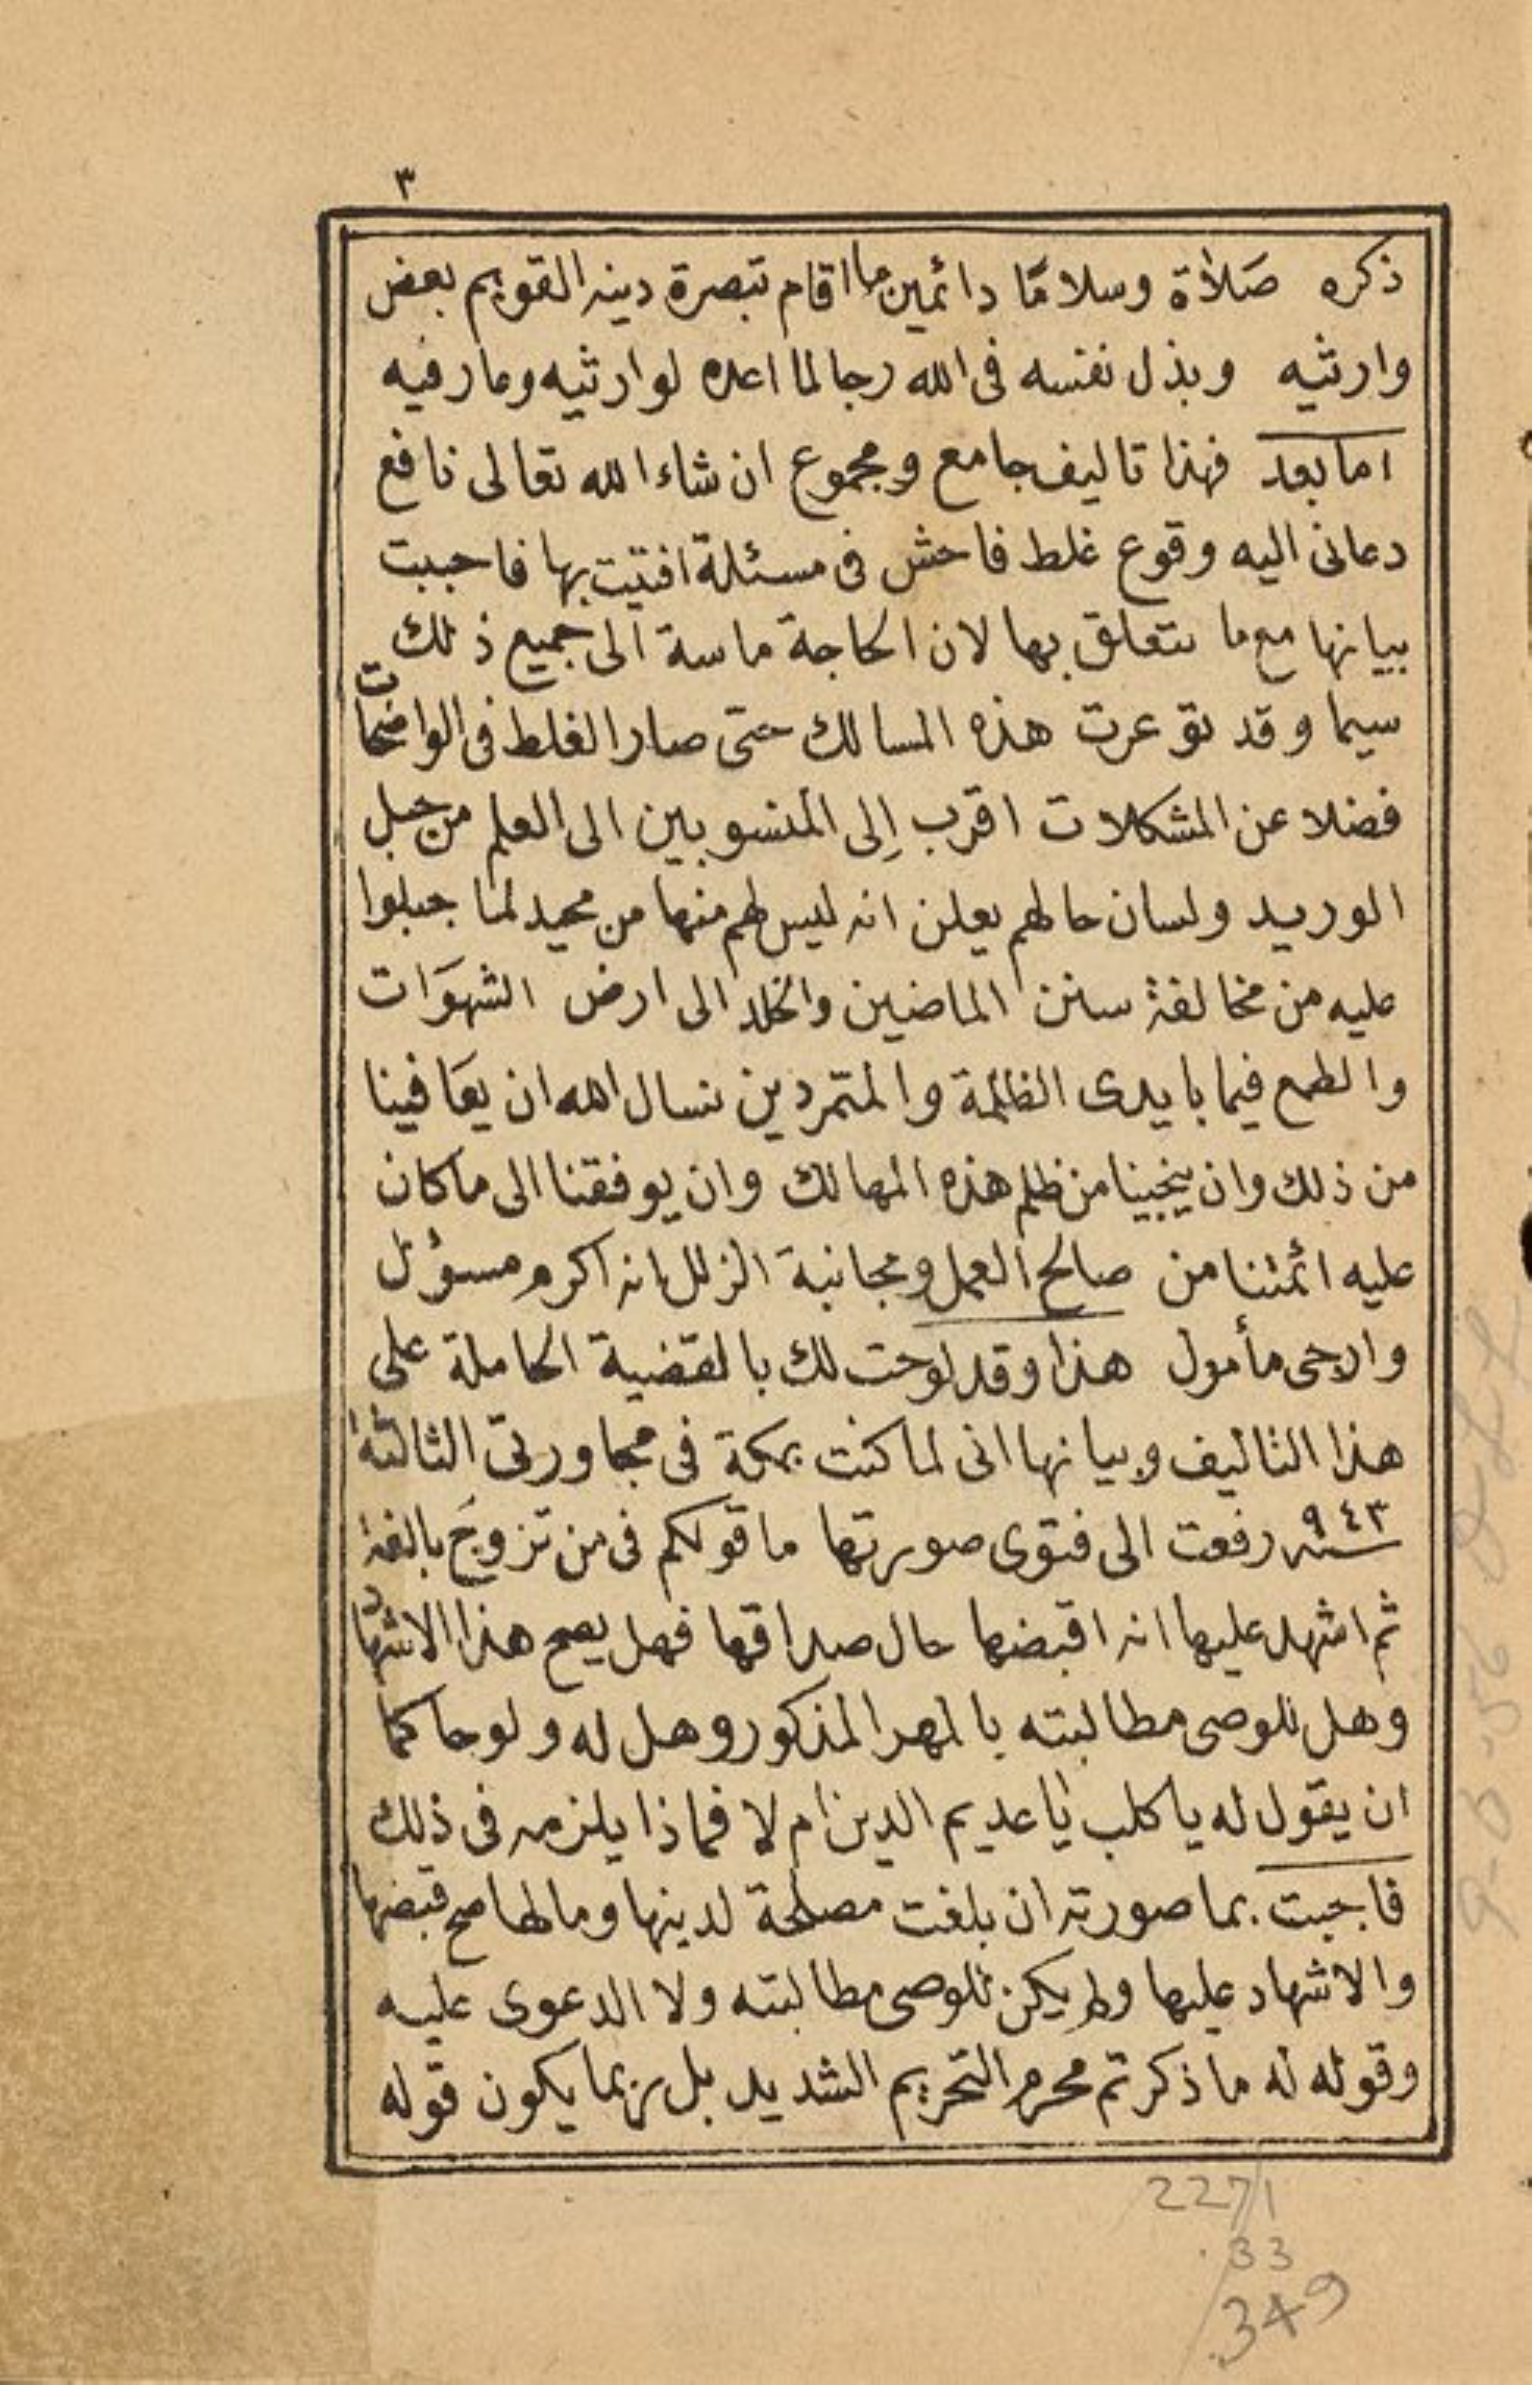 ٣
ذكره صَلاٰة وسلامًا دائمين ما اقام تبصرة دينه القويم بعض
وارثيه وبذل نفسه فى الله رجا لما اعده لوارثيه ومارفيه
اما بعد فهذا تاليف جامع ومجموع ان شاء الله تعالى نافع
دعانى اليه وقوع غلط فاحش فى مسئلة افتيت بها فاحببت
بيانها مع ما يتعلق بها لان الحاجة ماسة الى جميع ذلك
سيما وقد توعرت هذه المسالك حتى صار الغلط فى الواضحات
فضلا عن المشكلات اقرب إلى المنسوبين الى العلم من حبل
الوريد ولسان حالهم يعلن انه ليس لهم منها من محيد لما جبلوا
عليه من مخالفة سنن الماضين والخلد الى ارض الشهوَات
والطمع فيما بايدى الظلمة والمتمردين نسال الله ان يعَافينا
من ذلك وان ينجينا من ظلم هذه المهالك وان يوفقنا الى ما كان
عليه ائمتنا من صالح العمل ومجانبة الزلل انه اكرم مسؤل
وارجى مأمول هذا وقد لوحت لك بالقضية الحاملة على
هذا التاليف وبيانها انى لما كنت بمكة فى مجاورتى الثالثة
سنه ٩٤٣ رفعت الى فتوى صورتها ما قولكم فى من تزوجَ بالغة
ثم اشهد عليها انه اقبضها حال صداقها فهل يصح هذا الاشهاد
وهل للوصى مطالبته بالمهر المذكور وهل له ولو حاكما
ان يقول له يا كلب يا عديم الدين ام لا فماذا يلزمه فى ذلك
فاجبت بما صورته ان بلغت مصلحة لدينها ومالها صح قبضها
والاشهاد عليها ولم يكن للوصى مطالبته ولا الدعوى عليه
وقوله له ما ذكر تم محرم التحريم الشديد بل ربما يكون قوله
2271
.33
.349